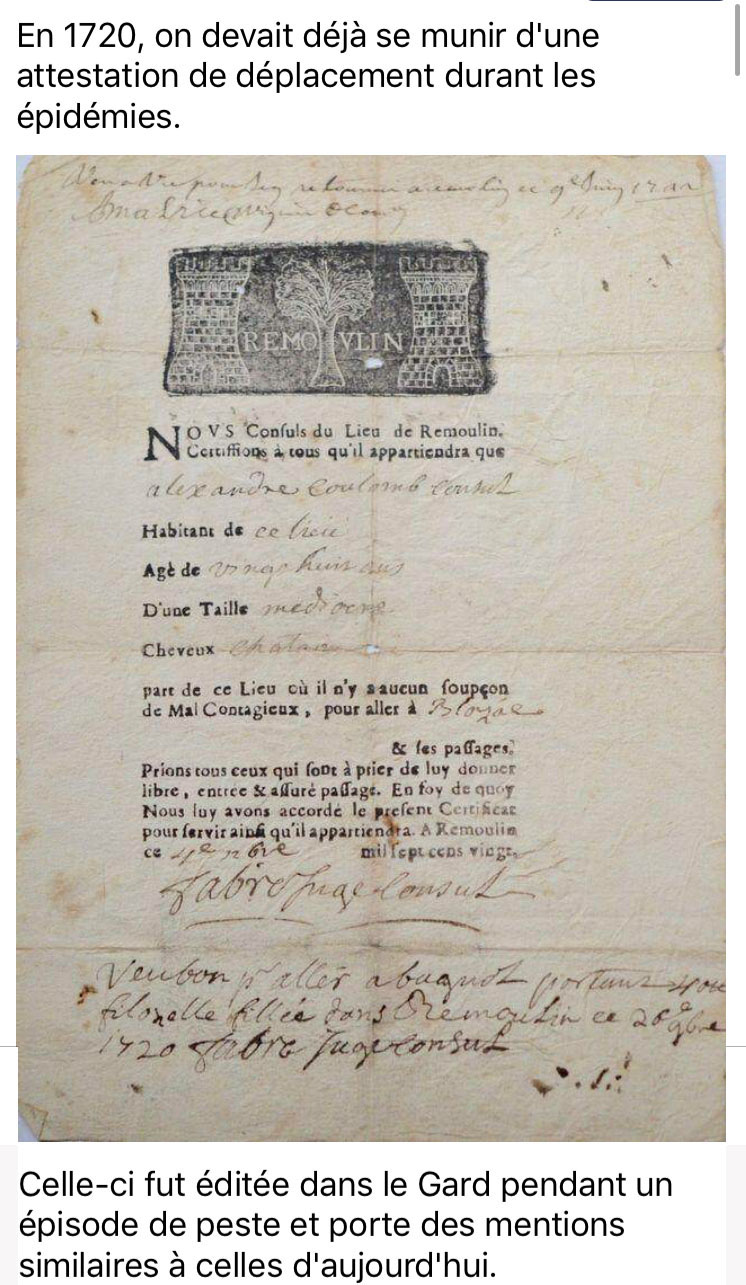 En 1720, on devait déjà se munir d'une
attestation de déplacement durant les
épidémies.
REMOVLIN
NOVS Conſuls du Lieu de Remoulin.
Certiffions à tous qu'il appartiendra que
alexandre Coulomb Consul
Habitant de ce lieu
Agè de vingt huit ans
D'une Taille mediocre
Cheveux chatain
part de ce Lieu où il n'y a aucun ſoupçon
de Mal Contagieux, pour aller à
& ſes paſſages,
Prions tous ceux qui ſont à prier de luy donner
libre, entrée & aſſuré paſſage. En foy de quoy
Nous luy avons accordé le preſent Certificat
pour ſervir ainſi qu'il appartiendra. A Remoulin
ce mil ſept cens vingt.
fabre Juge Consul
Veu bon pr aller a portant
filozelle fillée dans Remoulin ce 28e
1720 fabre Juge Consul
Celle-ci fut éditée dans le Gard pendant un
épisode de peste et porte des mentions
similaires à celles d'aujourd'hui.